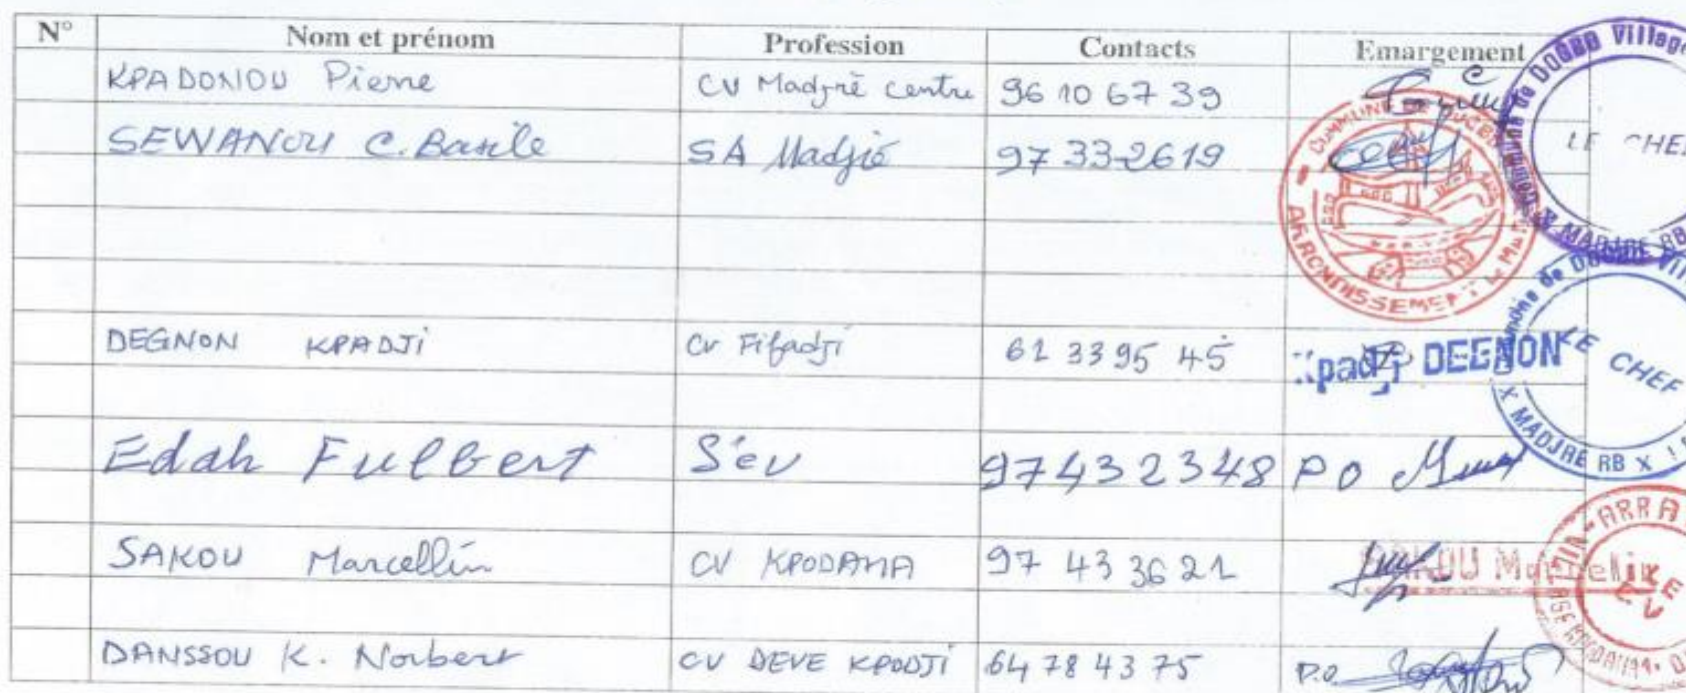 N° Nom et prénom Profession Contacts Emargement
KPADONOU Pierre CV Madjrè centre 96 10 67 39
SEWANOU C. Basile SA Madjré 97 33 26 19
DEGNON KPADJI CV Fifadji 61 33 95 45 Kpadji DEGNON
Edah Fulbert Sev 97432348 PO
SAKOU Marcellin CV KPODAHA 97 43 36 21
DANSSOU K. Norbert CV DEVE KPODJI 64 78 43 75 P.O
COMMUNE DE DOGBO
ARRONDISSEMENT DE
de DOGBO Village
LE CHEF
X MADJRE RB
de DOGBO
LE CHEF
X MADJRE RB X